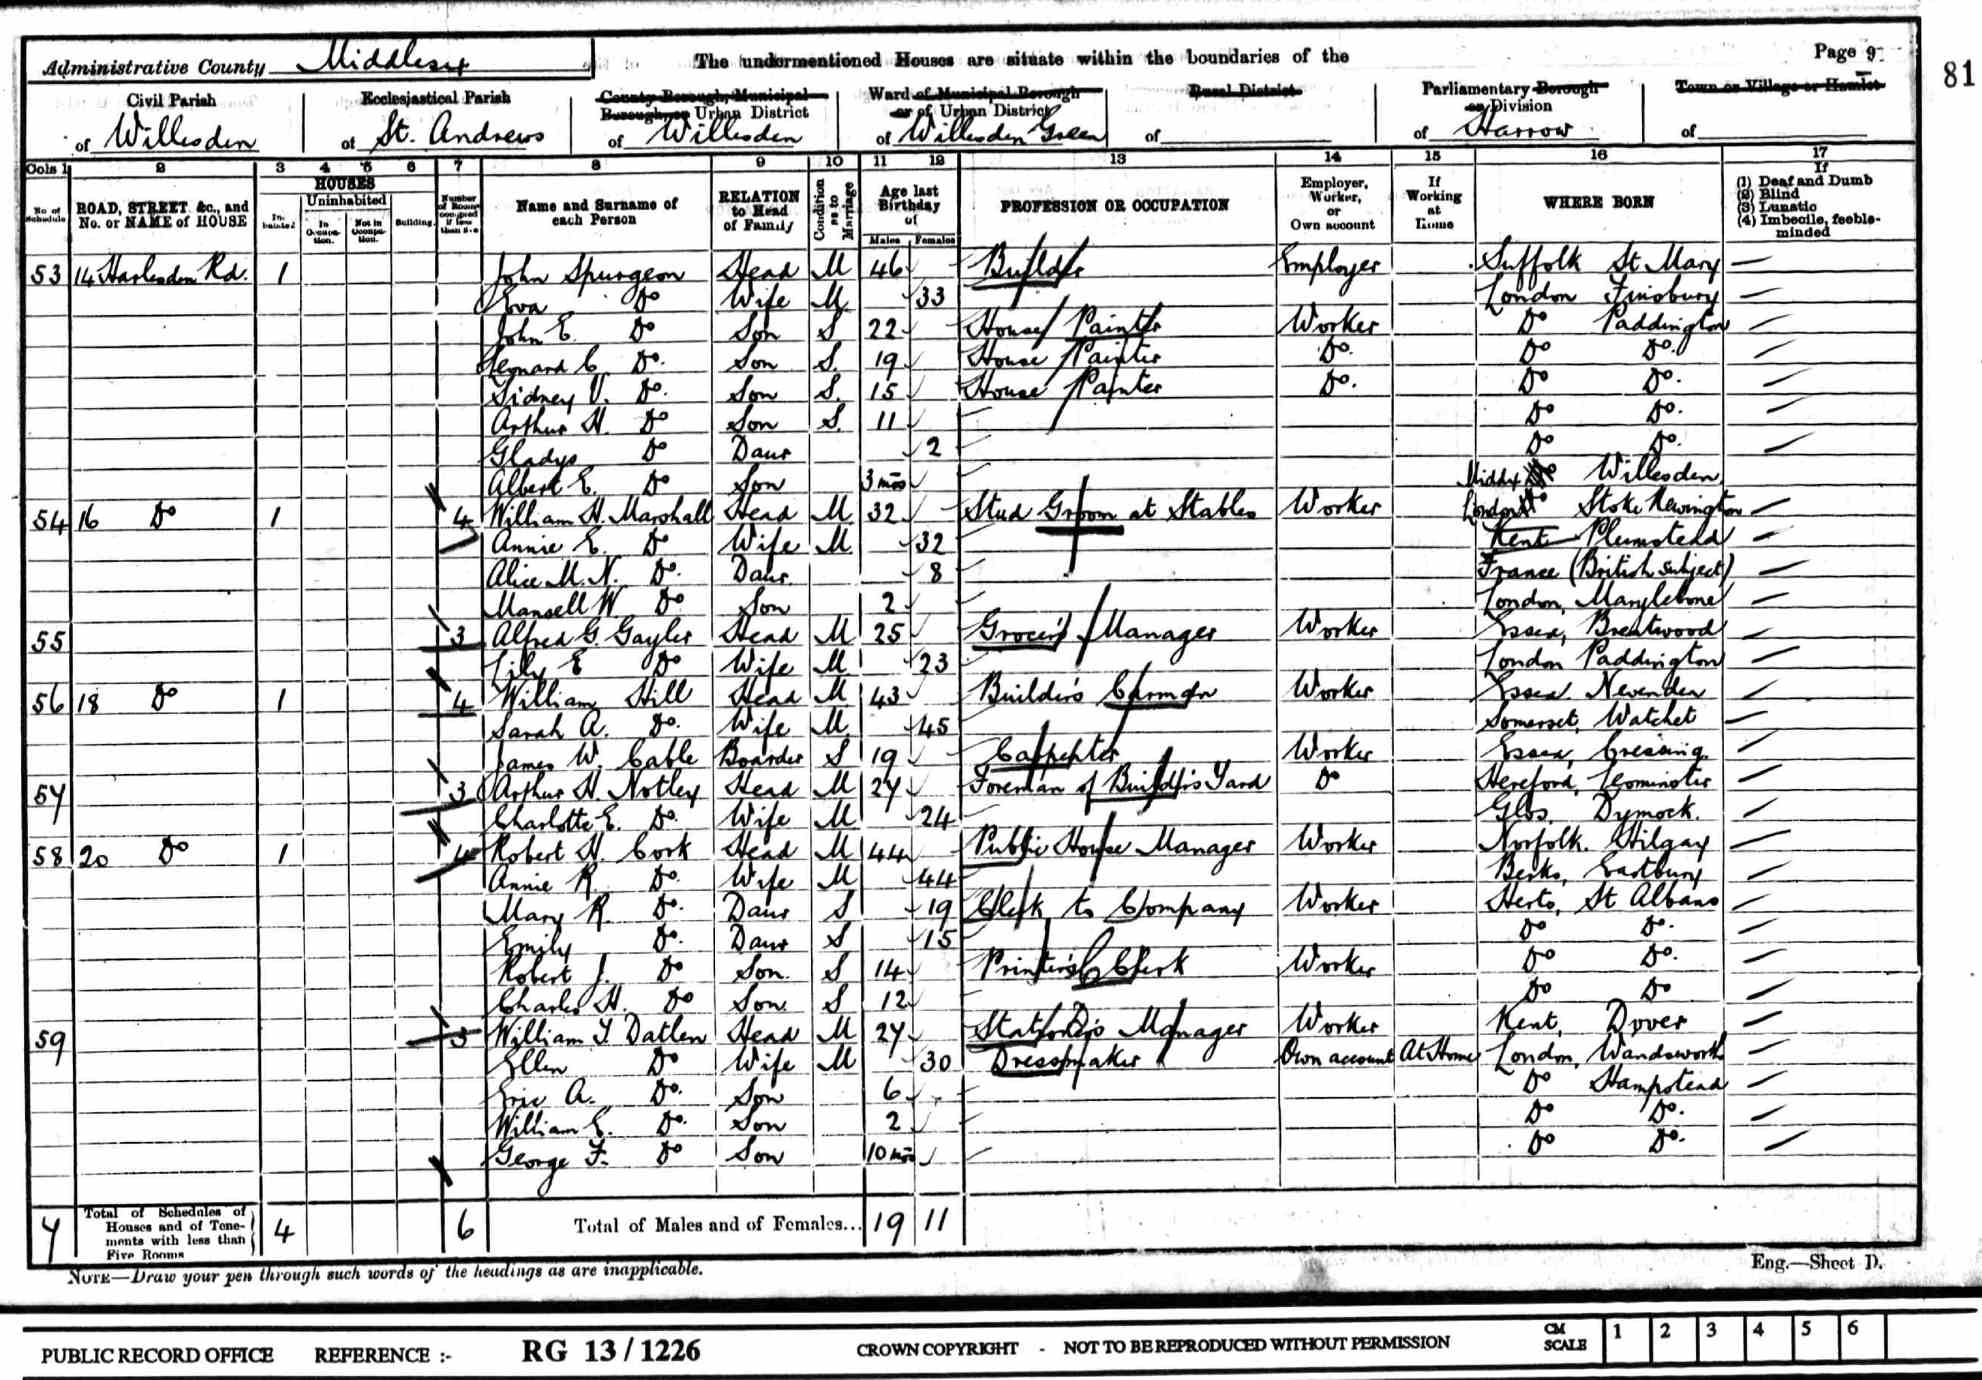 Administrative County Middlesex
The undermentioned Houses are situate within the boundaries of the
Page 9
81
Civil Parish of Willesden
Ecclesiastical Parish of St. Andrews
County Borough, Municipal Borough, or Urban District of Willesden
Ward of Municipal Borough or of Urban District of Willesden Green
Rural District of
Parliamentary Borough or Division of Harrow
Town or Village or Hamlet of
Cols 1 2 3 4 5 6 7 8 9 10 11 12 13 14 15 16 17
No. of Schedule
ROAD, STREET, &c., and No. or NAME of HOUSE
HOUSES
Inhabited
Uninhabited
In Occupation.
Not in Occupation.
Building.
Number of Rooms occupied if less than five
Name and Surname of each Person
RELATION to Head of Family
Condition as to Marriage
Age last Birthday of
Males Females
PROFESSION OR OCCUPATION
Employer, Worker, or Own account
If Working at Home
WHERE BORN
If (1) Deaf and Dumb (2) Blind (3) Lunatic (4) Imbecile, feeble-minded
53 14 Harlesden Rd. 1 John Spurgeon Head M 46 Builder Employer Suffolk St Mary
Eva Do Wife M 33 London Finsbury
John E. Do Son S 22 House Painter Worker Do Paddington
Leonard C. Do. Son S. 19 House Painter Do. Do Do.
Sidney V. Do. Son S. 15 House Painter Do. Do Do.
Arthur H. Do Son S. 11 Do Do.
Gladys Do Daur 2 Do Do.
Albert E. Do Son 3 mos Middx Willesden
54 16 Do 1 4 William H. Marshall Head M 32 Stud Groom at Stables Worker London Stoke Newington
Annie E. Do Wife M 32 Kent Plumstead
Alice M. N. Do. Daur 8 France (British Subject)
Mansell W Do Son 2 London, Marylebone
55 3 Alfred G. Gayler Head M 25 Grocer's Manager Worker Essex, Brentwood
Lily E Do Wife M 23 London Paddington
56 18 Do 1 4 William Hill Head M 43 Builder's Carman Worker Essex. Nevenden
Sarah A. Do. Wife M 45 Somerset, Watchet
James W. Cable Boarder S 19 Carpenter Worker Essex, Cressing
57 3 Arthur H. Notley Head M 27 Foreman of Builder's Yard Do Hereford, Leominster
Charlotte E. Do. Wife M 24 Glos. Dymock.
58 20 Do 1 4 Robert H. Cork Head M 44 Public House Manager Worker Norfolk. Hilgay
Annie R. Do. Wife M 44 Berks, Eastbury
Mary R. Do. Daur S 19 Clerk to Company Worker Herts, St Albans
Emily Do. Daur S 15 Do Do.
Robert J. Do Son. S 14 Printer's Clerk Worker Do Do.
Charles H. Do Son. S 12 Do Do
59 3 William T Datlen Head M 27 Stationer's Manager Worker Kent, Dover
Ellen Do Wife M 30 Dressmaker Own account At Home London, Wandsworth
Eric A. Do. Son 6 Do Hampstead
William E. Do. Son 2 Do Do.
George F. Do Son 10 mos Do Do.
7 Total of Schedules of Houses and of Tenements with less than Five Rooms 4 6 Total of Males and of Females... 19 11
NOTE—Draw your pen through such words of the headings as are inapplicable.
Eng.—Sheet D.
PUBLIC RECORD OFFICE REFERENCE :- RG 13/1226 CROWN COPYRIGHT - NOT TO BE REPRODUCED WITHOUT PERMISSION
CM SCALE 1 2 3 4 5 6